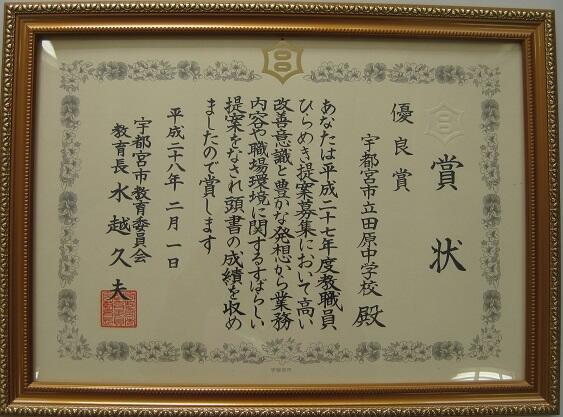 賞状
優良賞
宇都宮市立田原中学校 殿
あなたは平成二十七年度教職員
ひらめき提案募集において高い
改善意識と豊かな発想から業務
内容や職場環境に関するすばらしい
提案をなされ頭書の成績を収め
ましたので賞します
平成二十八年 二月 一日
宇都宮市教育委員会
教育長 水越久夫